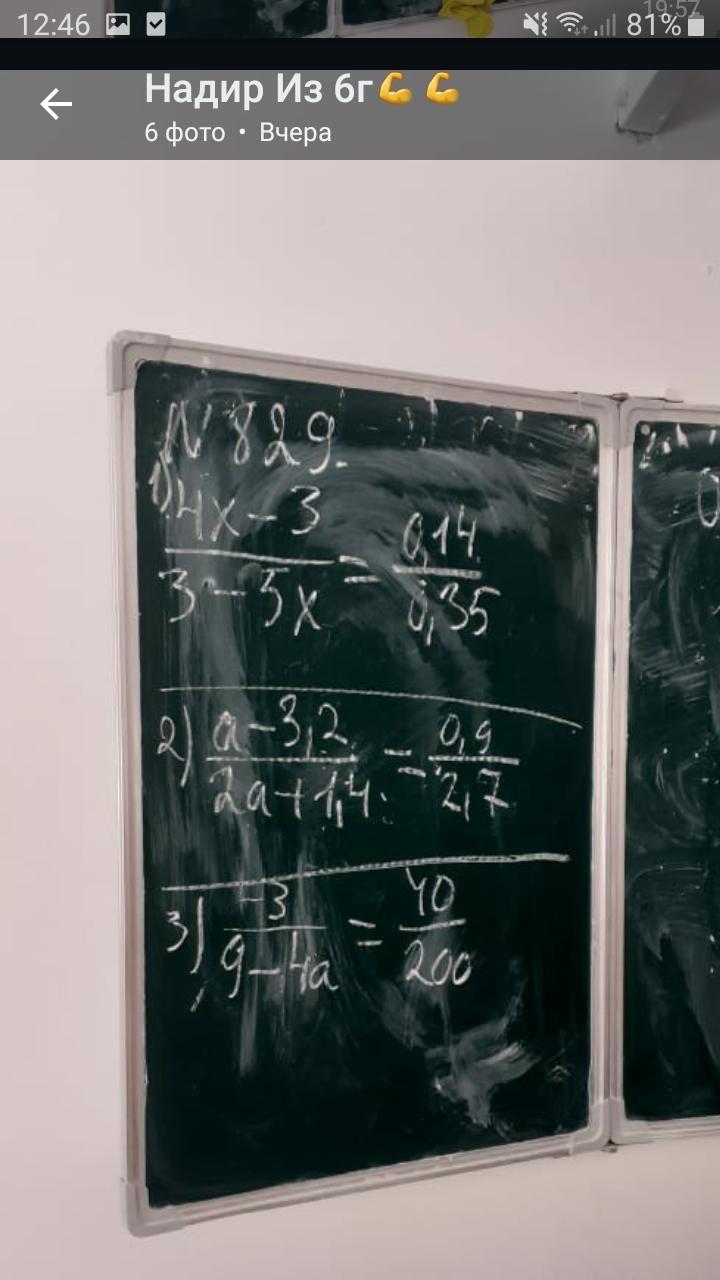 12:46
19:57
81%
Надир Из 6г💪💪
6 фото • Вчера
N 829.
1) (4x-3)/(3-5x) = 0,14/0,35
2) (a-3,2)/(2a+1,4) = 0,9/2,7
3) -3/(9-4a) = 40/200